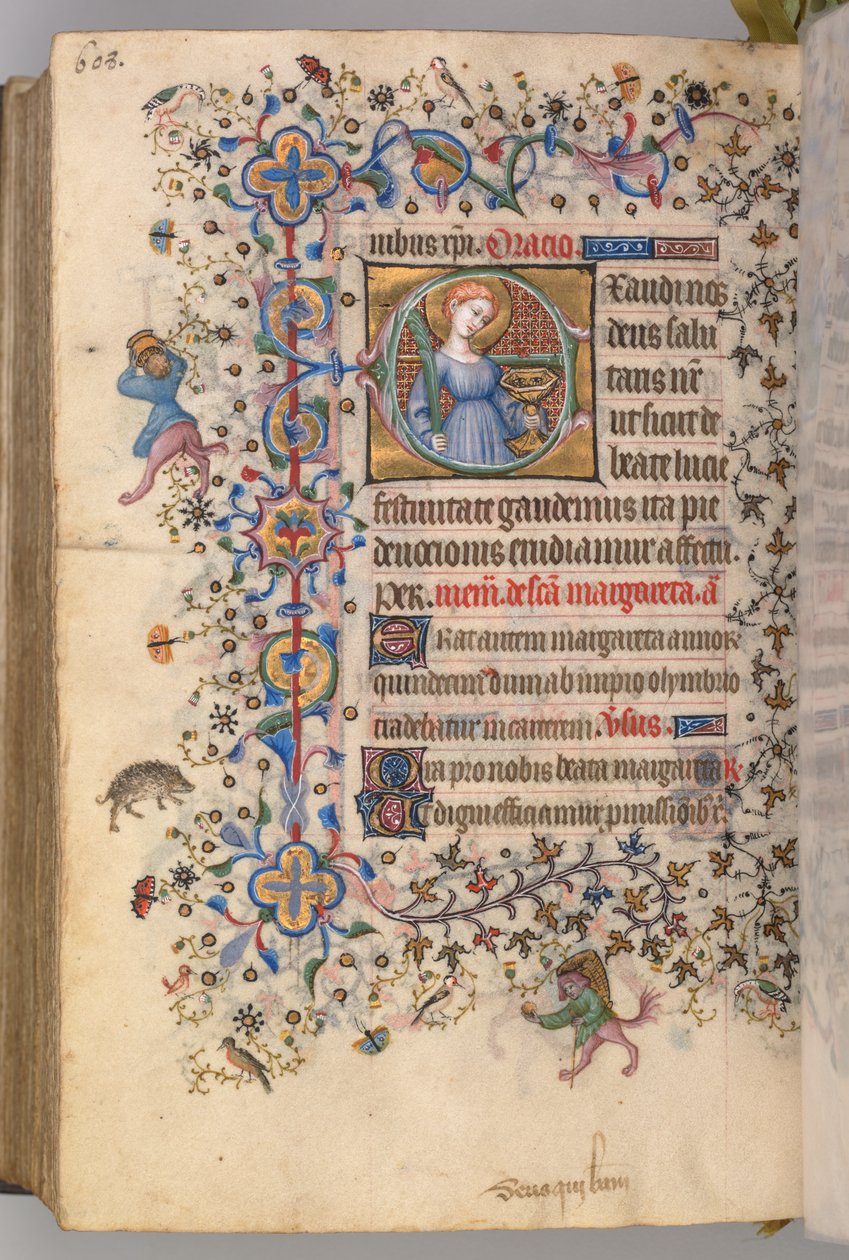 603.
nibus xpi. Oracio.
Exaudi nos
deus salu
taris nr̄
ut sicut de
beate lucie
festiuitate gaudemus ita pie
deuocionis erudiamur affectu.
Per. mem̄. de scā margareta. a͞
Erat autem margareta annoꝝ
quindecim dum ab impio olymbrio
tradebatur in carcerem. V̄sus.
Ora pro nobis beata margareta R̄
Ut digni efficiamur p̄missioīb̄
Deus qui btām